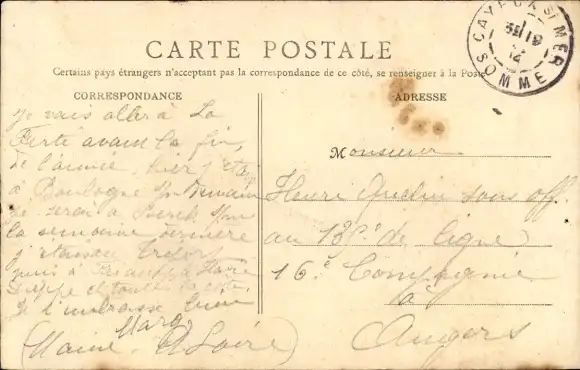 CARTE POSTALE
Certains pays étrangers n'acceptant pas la correspondance de ce côté, se renseigner à la Poste
CAYEUX S MER
SOMME
CORRESPONDANCE
Je vais aller à La
Ferté avant la fin,
de l'année, hier j'étais
à Boulogne demain
je serai à Berck
la semaine dernière
j'étais au Tréport
puis à Havre
Dieppe et toute la côte
Je t'embrasse bien
Marg
ADRESSE
Monsieur
Henri sous off.
au 135e de ligne
16e Compagnie
à
Angers
(Maine & Loire)